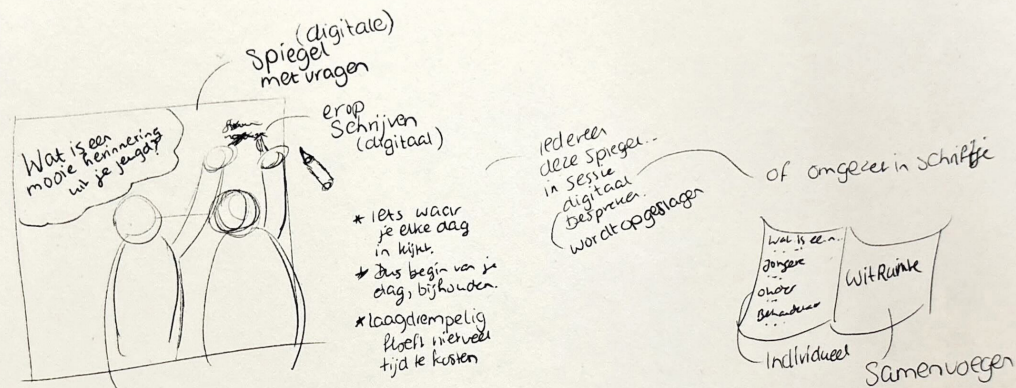 (digitale)
Spiegel
met vragen
Wat is een
mooie herinnering
uit je jeugd?
erop
schrijven
(digitaal)
* Iets waar
je elke dag
in kijkt.
* Dus begin van je
dag, bijhouden.
* Laagdrempelig
hoeft niet veel
tijd te kosten
iedereen
deze spiegel...
in sessie
digitaal
bespreken
wordt opgeslagen
of omgezet in schriftje
Wat is een..
Jongere
ouder
Behandelaar
WitRuimte
Individueel
Samenvoegen